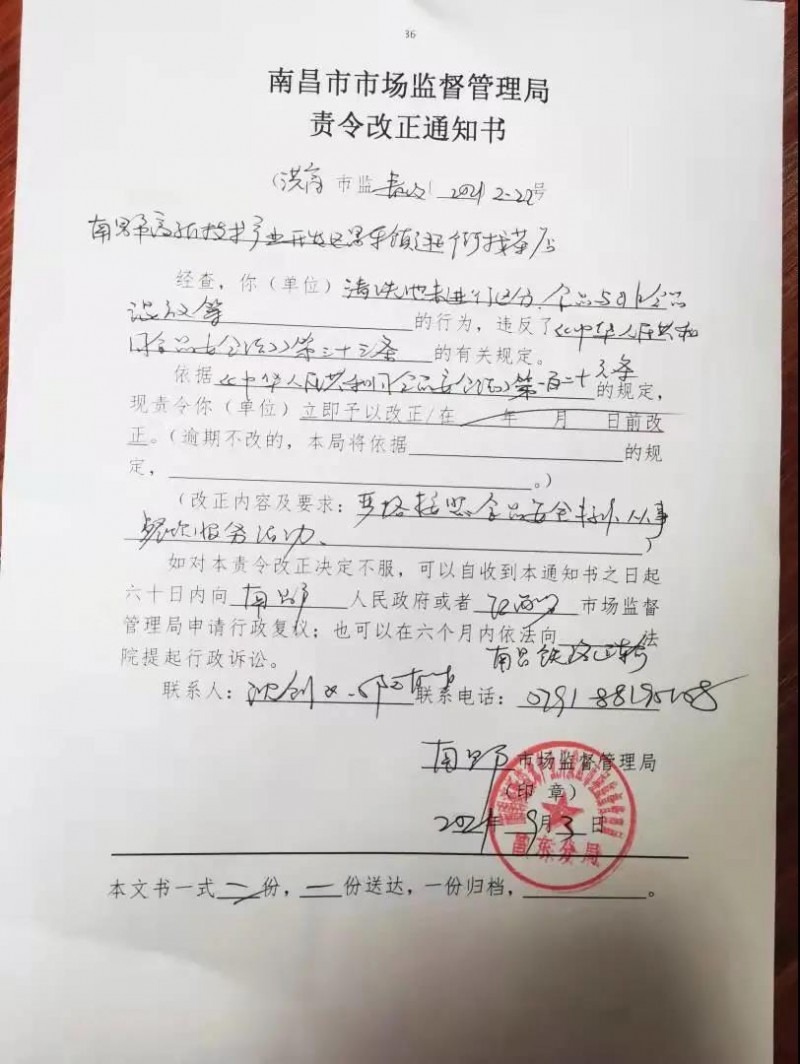 36
南昌市市场监督管理局
责令改正通知书
(洪高 市监 责改 〔2021〕2-22号
南昌市高新技术产业开发区 街 茶店
经查，你（单位）
等 的行为，违反了《中华人民共和
国食品安全法》第三十三条 的有关规定。
依据《中华人民共和国食品安全法》第一百二十六条 的规定，
现责令你（单位）立即予以改正/在 年 月 日前改
正。（逾期不改的，本局将依据 的规
定， 。）
（改正内容及要求：严格按照食品安全 从事
餐饮服务活动、 ）
如对本责令改正决定不服，可以自收到本通知书之日起
六十日内向 南昌市 人民政府或者 江西省 市场监督
管理局申请行政复议；也可以在六个月内依法向 南昌铁路运输 法
院提起行政诉讼。
联系人： 联系电话：0791-88195108
南昌市 市场监督管理局
（印 章）
2021年 9月3日
昌东分局
本文书一式二份，一份送达，一份归档， 。